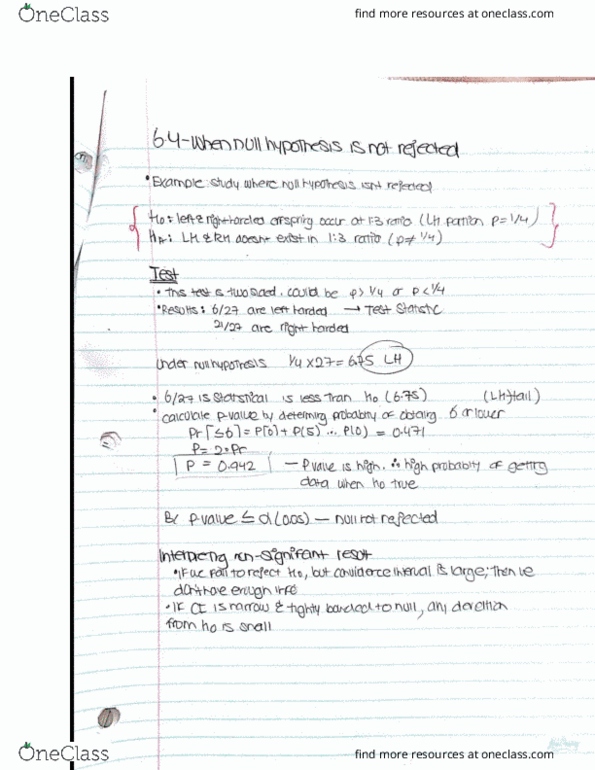 OneClass
find more resources at oneclass.com
6.4-When null hypothesis is not rejected
• Example: study where null hypothesis isnt rejected
Ho: left & right handed offspring occur at 1:3 ratio (LH portion p=1/4)
HA: LH & RH doesnt exist in 1:3 ratio (p≠1/4)
Test
• this test is two sided, could be p>1/4 or p<1/4
• Results: 6/27 are left handed → Test Statistic
21/27 are right handed
Under null hypothesis 1/4 x 27 = 6.75 LH
• 6/27 is Statistical is less than ho (6.75) (LH tail)
• calculate p-value by determing probability of obtaing 6 or lower
Pr[≤6] = P[6] + P(5) ... P(0) = 0.471
P = 2•Pr
P = 0.942 — P value is high, ∴ high probability of getting
data when ho true
Bc p value ≤ α (0.05) — null not rejected
Interpreting non-signifant result
• If we fail to reject Ho, but confiderce interval is large; then we
don't have enough info
• If CI is narrow & tightly banded to null, any
from ho is small
OneClass
find more resources at oneclass.com